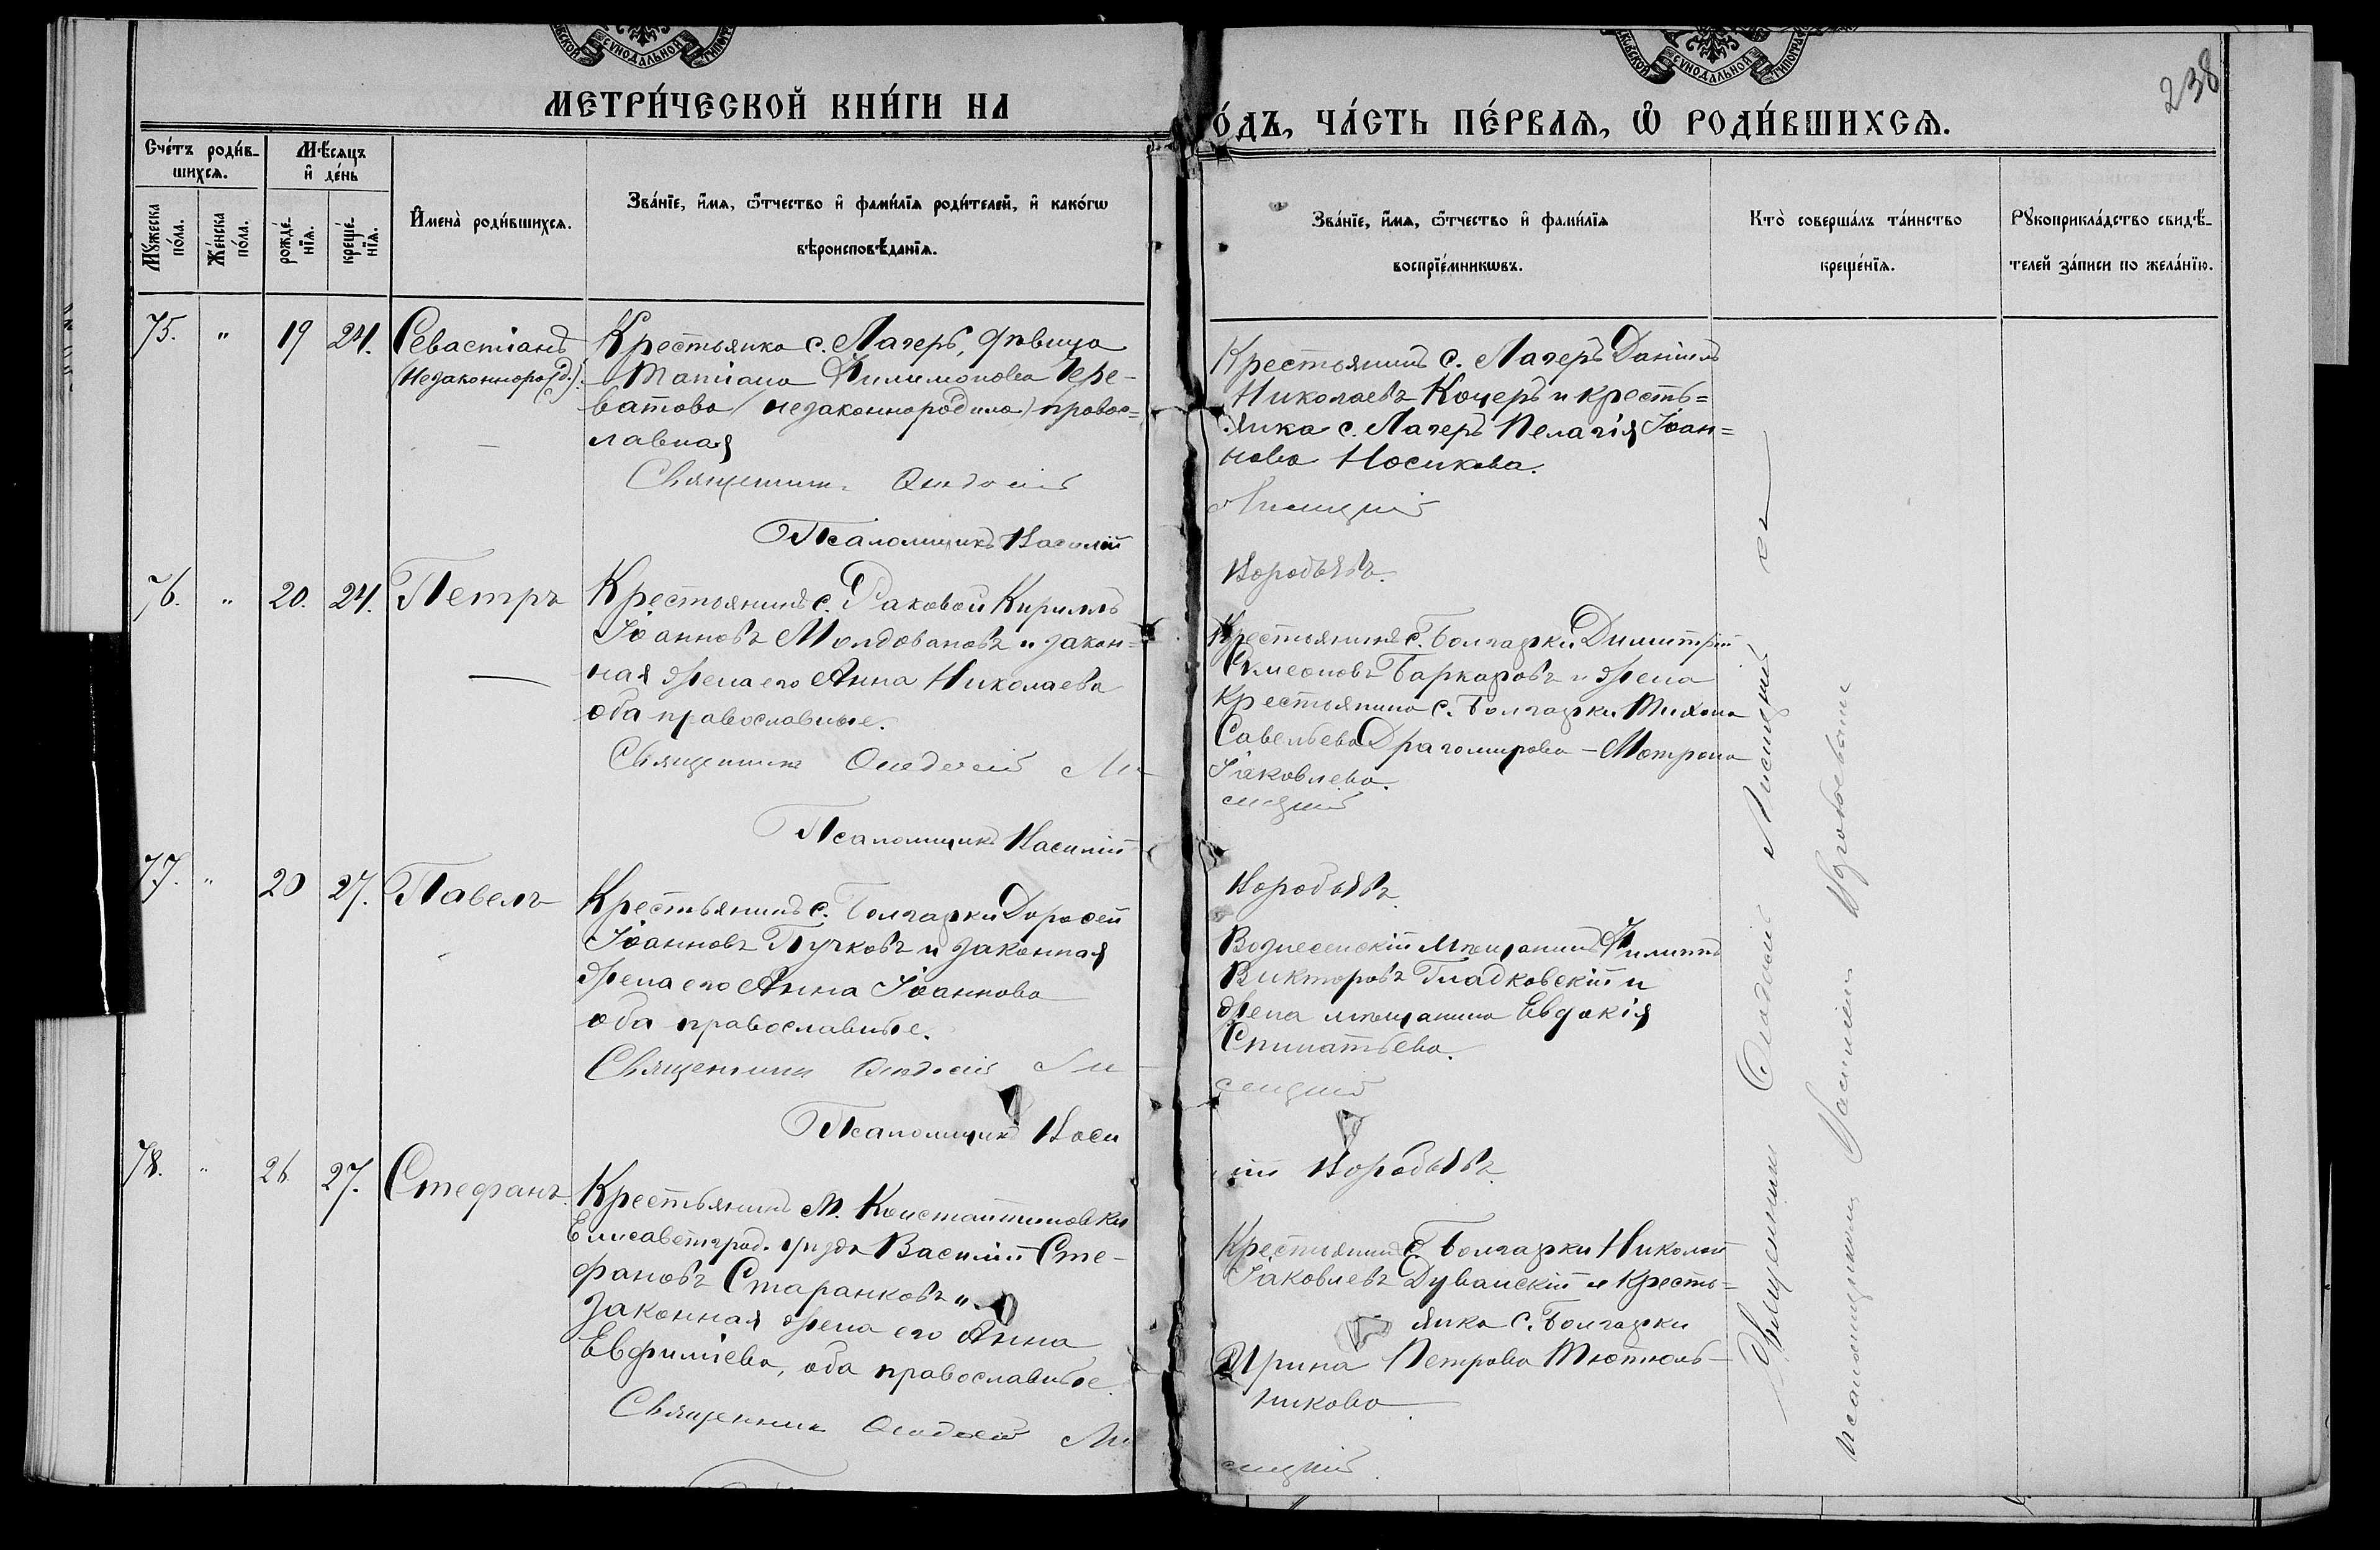 СѴНОДАЛЬНОЙ
СѴНОДАЛЬНОЙ
238
МЕТРИ́ЧЕСКОЙ КНИ́ГИ НА
О́ДЪ, ЧА́СТЬ ПЕ́РВАѦ, Ѡ҆ РОДИ́ВШИХСѦ.
Сче́тъ роди́в-
шихсѧ.
Мѣ́сѧцъ
и҆ де́нь
Мꙋ́жеска
по́ла.
Же́нска
по́ла.
рожде́-
нїѧ.
креще́-
нїѧ.
И҆мена̀ роди́вшихсѧ.
Зва́нїе, и҆́мѧ, ѻ҆́тчество и҆ фами́лїѧ роди́телей, и҆ како́гѡ
вѣроисповѣ́данїѧ.
Зва́нїе, и҆́мѧ, ѻ҆́тчество и҆ фами́лїѧ
воспрїе́мникѡвъ.
Кто̀ соверша́лъ та́инство
креще́нїѧ.
Рꙋкоприкла́дство свидѣ́-
телей за́писи по жела́нїю.
75. " 19 24. Севастіанъ
(Незаконнорожд.)
Крестьянка с. Лагеръ, дѣвица
Татіана Филимонова Чере-
ватова (незаконнородила) правос=
лавная
Священникъ Ѳеодосій
Псаломщикъ Василій
Крестьянинъ с. Лагеръ Даніилъ
Николаевъ Кочеръ и кресть=
янка с. Лагеръ Пелагія Іоан=
нова Носикова.
Лисицкій
Воробьевъ.
76. " 20. 24. Петръ
Крестьянинъ с. Раковой Кириллъ
Іоанновъ Молдовановъ и закон=
ная жена его Анна Николаева
оба православные.
Священникъ Ѳеодосій Ли-
Псаломщикъ Василій
Крестьянинъ с. Болгарки Димитрій
Симеоновъ Баркаровъ и жена
крестьянина с. Болгарки Тихона
Савельева Драгомирова - Матрона
Іаковлева.
сицкій
Воробьевъ
77. " 20 27. Павелъ
Крестьянинъ с. Болгарки Дороѳей
Іоанновъ Пучковъ и законная
жена его Анна Іоаннова
оба православные.
Священникъ Ѳеодосій Ли
Псаломщикъ Васи
Вознесенскій мѣщанинъ Филиппъ
Викторовъ Гладковскій и
жена мѣщанина Евдокія
Игнатьева.
сицкій
лій Воробьевъ
78. " 26 27. Стефанъ.
Крестьянинъ м. Константиновки
Елисаветград. уѣзда Василій Сте-
фановъ Старанковъ и
законная жена его Анна
Евфиміева, оба православные.
Священникъ Ѳеодосій Ли
Крестьянинъ с. Болгарки Николай
Іаковлевъ Дуванскій и кресть=
янка с. Болгарки
Ирина Петрова Тютюль-
никова
сицкій.
Священникъ Ѳеодосій Лисицкій съ
псаломщикомъ Василіемъ Воробьевымъ